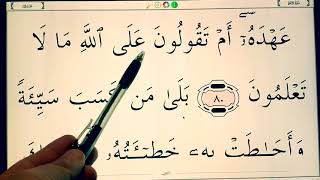 عَهْدَهُۥٓ أَمْ تَقُولُونَ عَلَى ٱللَّهِ مَا لَا
تَعْلَمُونَ ٨٠ بَلَىٰ مَن كَسَبَ سَيِّئَةً
وَأَحَٰطَتْ بِهِۦ خَطِيٓـَٔتُهُۥ